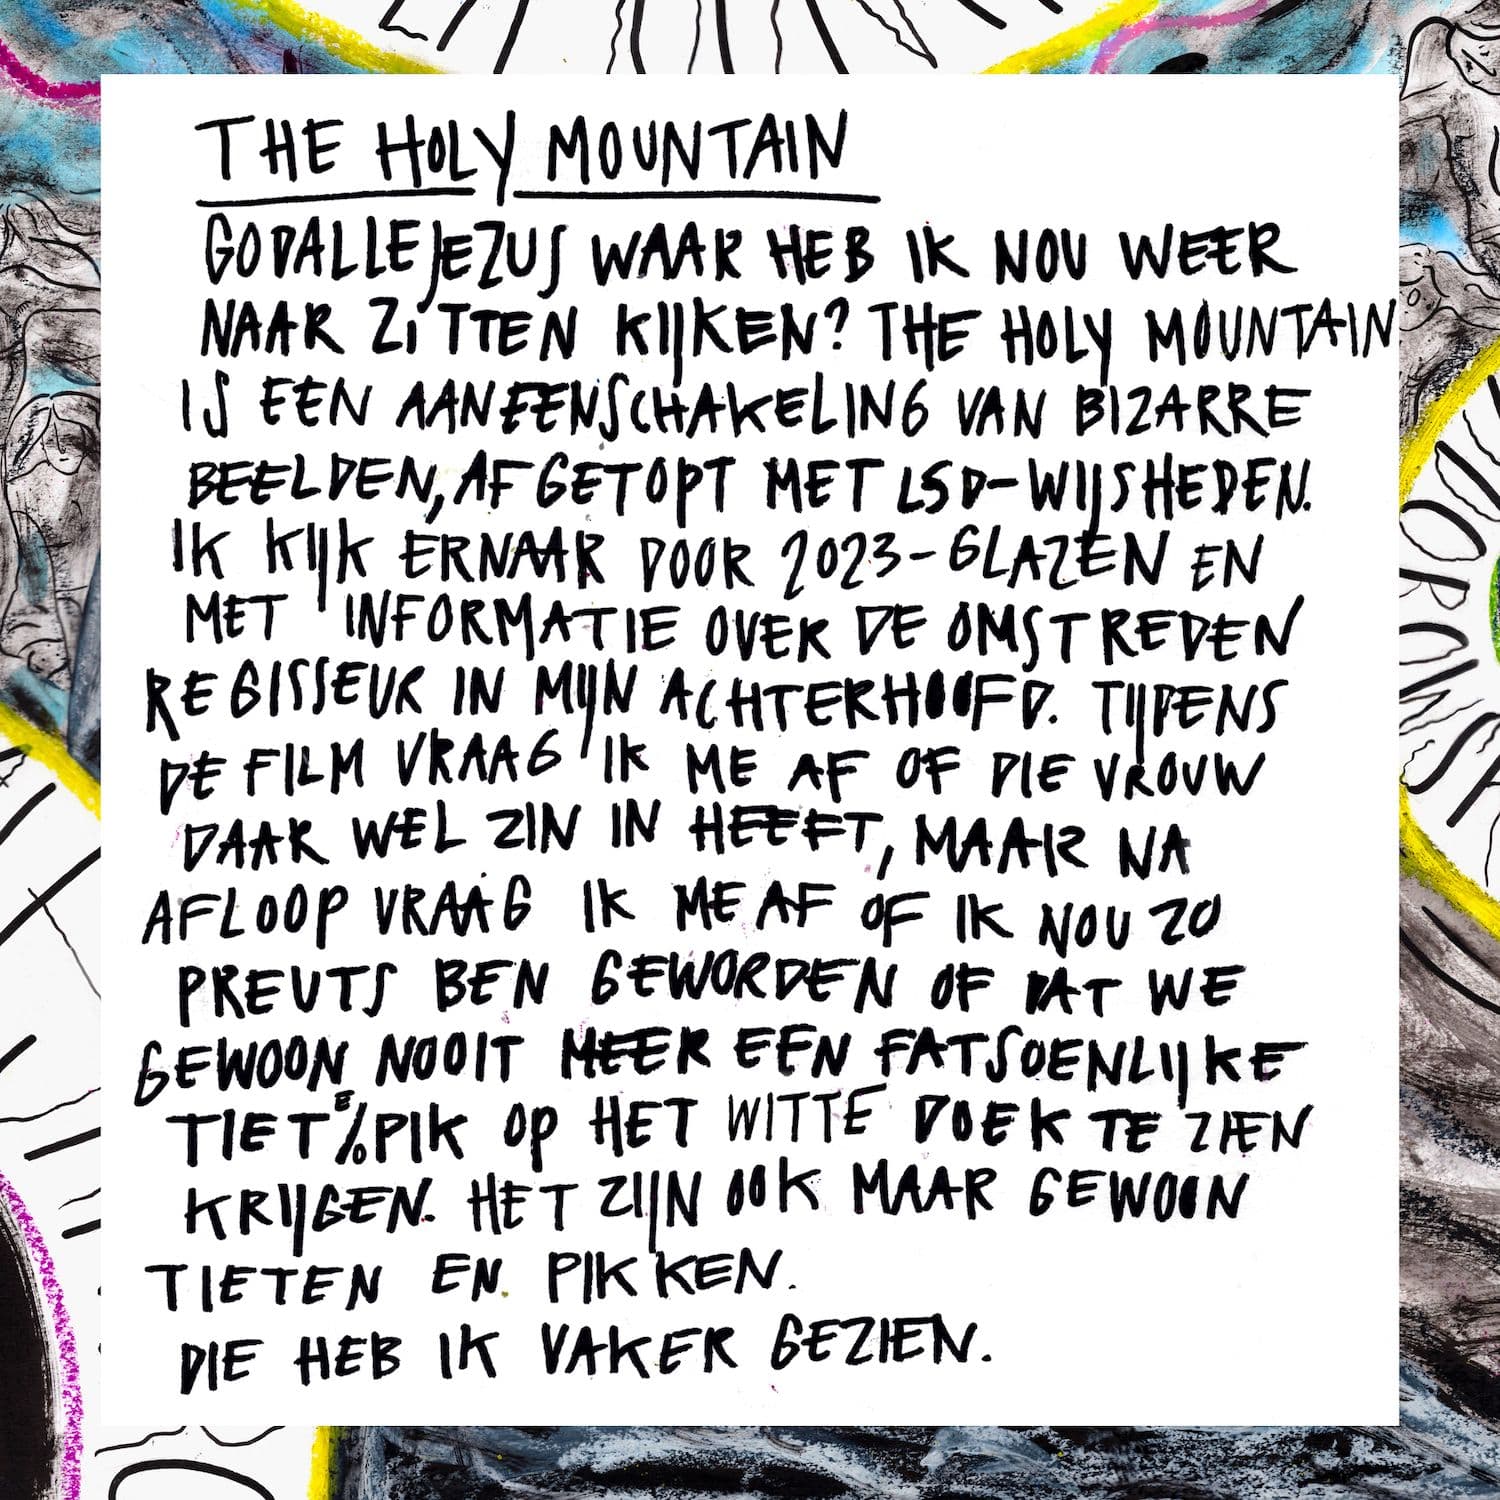 THE HOLY MOUNTAIN
GODALLEJEZUS WAAR HEB IK NOU WEER
NAAR ZITTEN KIJKEN? THE HOLY MOUNTAIN
IS EEN AANEENSCHAKELING VAN BIZARRE
BEELDEN, AFGETOPT MET LSD-WIJSHEDEN.
IK KIJK ERNAAR DOOR 2023-GLAZEN EN
MET INFORMATIE OVER DE OMSTREDEN
REGISSEUR IN MIJN ACHTERHOOFD. TIJDENS
DE FILM VRAAG IK ME AF OF DIE VROUW
DAAR WEL ZIN IN HEEFT, MAAR NA
AFLOOP VRAAG IK ME AF OF IK NOU ZO
PREUTS BEN GEWORDEN OF DAT WE
GEWOON NOOIT MEER EEN FATSOENLIJKE
TIET E%PIK OP HET WITTE DOEK TE ZIEN
KRIJGEN. HET ZIJN OOK MAAR GEWOON
TIETEN EN PIKKEN.
DIE HEB IK VAKER GEZIEN.